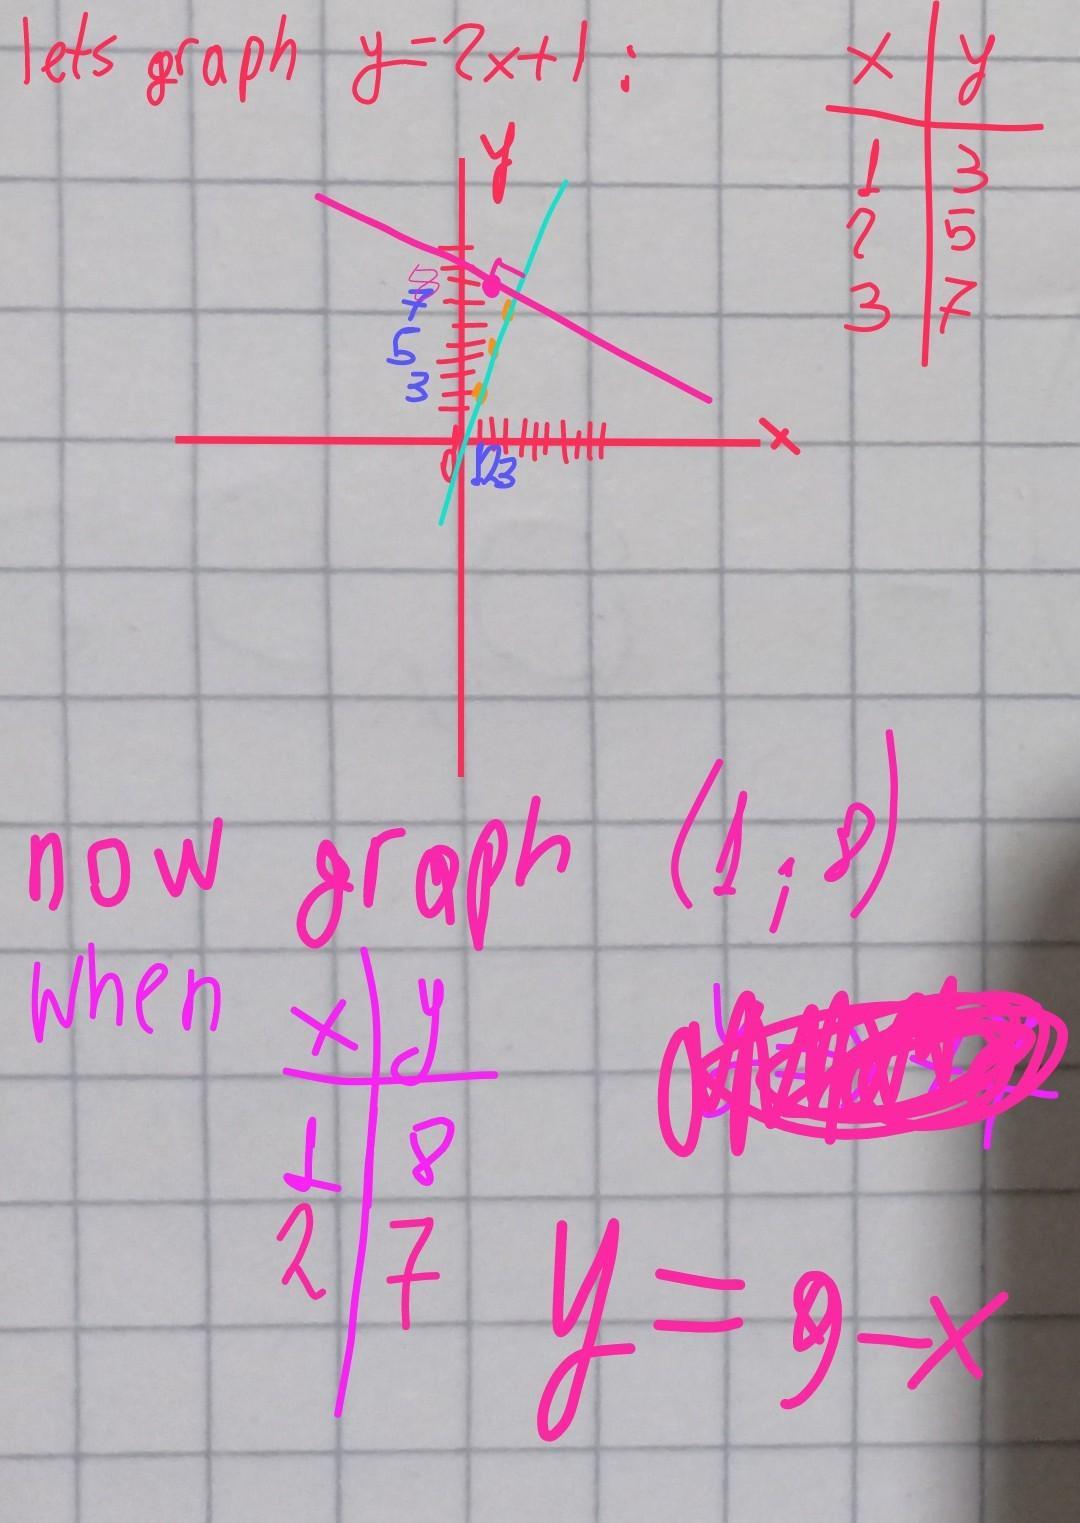 lets graph y=2x+1:
x y
1 3
2 5
3 7
y
8
7
5
3
x
0
1 2 3
now graph (1;8)
when
x y
1 8
2 7
y = 9-x